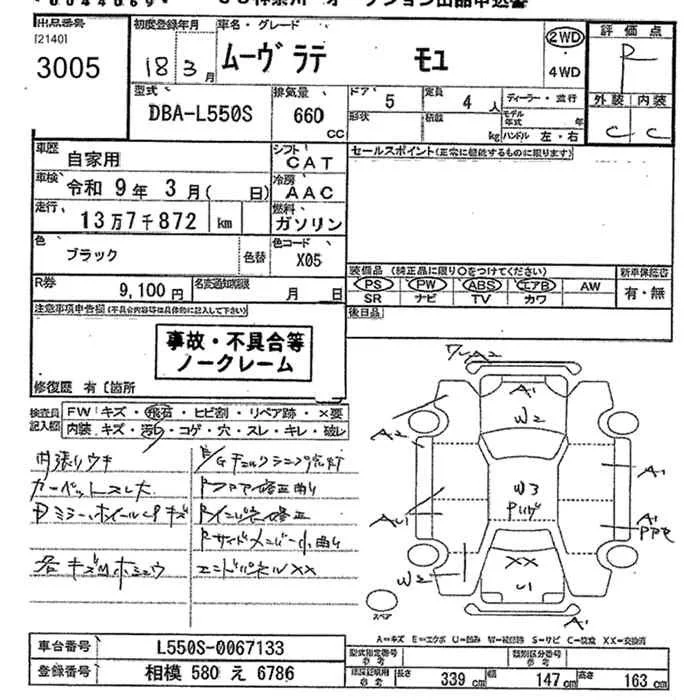 出品番号
[2140]
3005
初度登録年月
18年 3月
車名・グレード
ムーヴラテ モユ
2WD
・
4WD
評価点
R
外装 内装
C C
型式
DBA-L550S
排気量
660
CC
ドア
5
定員
4 人
ディーラー・並行
形状
積載
kg
モデル年式 年
ハンドル 左・右
車歴
自家用
シフト
CAT
セールスポイント(正常に機能するものに限ります)
車検
令和 9年 3月( 日)
冷房
AAC
走行
13万7千872 km
燃料
ガソリン
色
ブラック
色替
色コード
X05
装備品 (純正品に限り○をつけてください)
新車保証書
PS PW ABS エアB AW
SR ナビ TV カワ
有・無
R券
9,100円
名変通知期限
月 日
後日品
注意事項申告欄(不具合内容等は具体的に記入して下さい)
事故・不具合等
ノークレーム
修復歴 有〔箇所
検査員
記入欄
FW キズ・飛石・ヒビ割・リペア跡・×要
内装 キズ・汚れ・コゲ・穴・スレ・キレ・破レ
内張りウキ
カーペットスレ大
Dミラー、ホイールCPキズ
各キズ
Pフロア修正曲り
Pインパネ修正
Pサイドメンバー小曲り
エンドパネルXX
A2
A1
W2
A1
W3
A1
XX
U1
W2
A1
スペア
A=キズ E=エクボ U=凹み W=補修跡 S=サビ C=腐食 XX=交換済
車台番号
L550S-0067133
登録番号
相模 580 え 6786
型式指定番号
参考
類別区分番号
参考
車検証記載
参考
長さ
339 cm
幅
147 cm
高さ
163 cm